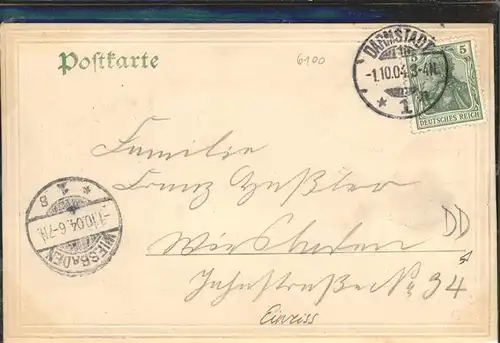 Postkarte
6100
DARMSTADT
-1.10.04.3-4N.
* 1
5
DEUTSCHES REICH
Familie
Franz
Wiesbaden
Jahnstraße No 34
DD
Einriss
* 1 s
-1.10.04.6-7N.
WIESBADEN